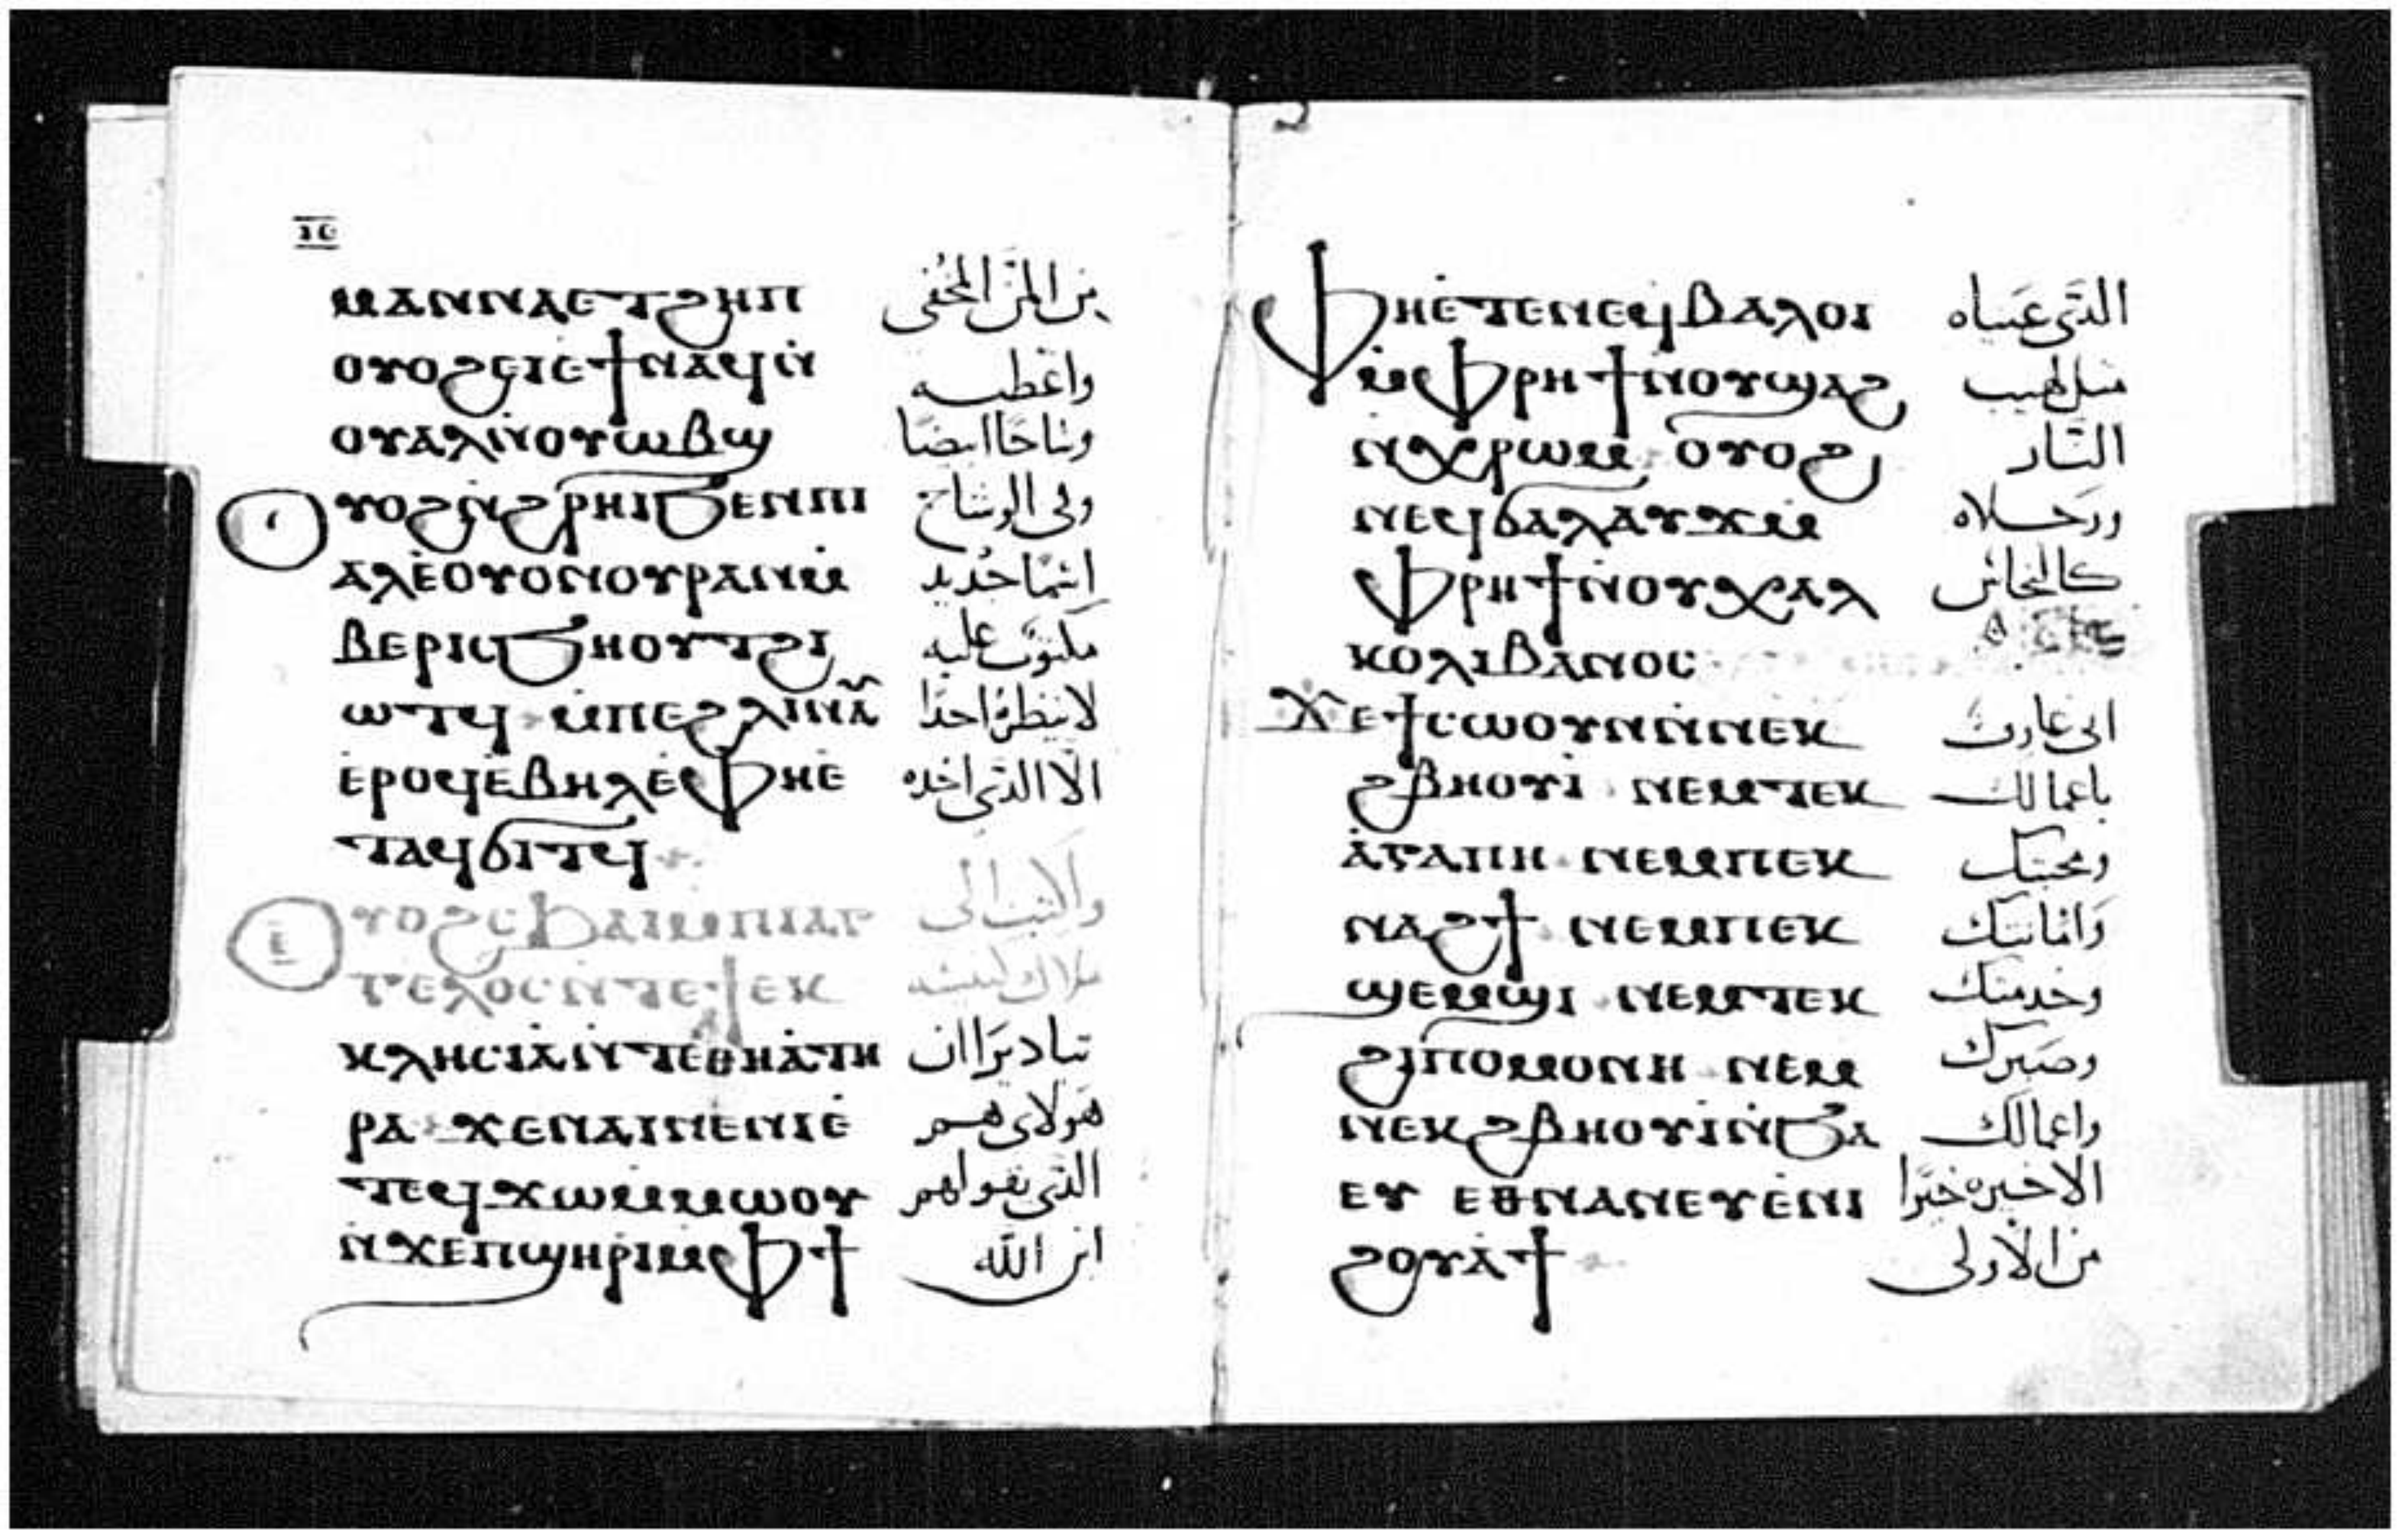 ⲓⲋ
ⲙⲁⲛⲛⲁⲉⲧϩⲏⲡ من المن المخفى
ⲟⲩⲟϩⲉⲓⲉϯⲛⲁϥⲛ̇ واعطيه
ⲟⲩⲁⲗⲛ̇ⲟⲩⲱⲃϣ وشاحا ابيضا
ⲩⲟϩⲛ̇ϩⲣⲏⲓϧⲉⲛⲡⲓ وفى الوشاح
ⲁⲗⲉ̇ⲟⲩⲟⲛⲟⲩⲣⲁⲛⲙ̇ اسما جديد
ⲃⲉⲣⲓⲥϧⲏⲟⲩⲧϩⲓ مكتوب عليه
ⲱⲧϥ ⲙ̇ⲡⲉϩⲗⲓⲛⲁ̃ لا ينظره احدا
ⲉ̇ⲣⲟϥⲉ̇ⲃⲏⲗⲉ̇ⲫⲏⲉ̇ الا الذى اخذه
ⲧⲁϥϭⲓⲧϥ
ⲩⲟϩⲥϧⲁⲓⲙ̇ⲡⲓⲁⲅ واكتب الى
ⲅⲉⲗⲟⲥⲛ̇ⲧⲉϯⲉⲕ ملاك كنيسه
ⲕⲗⲏⲥⲓⲁ̇ⲛ̇ⲧⲉⲑⲏⲁ̇ⲧⲏ تياديرا ان
ⲣⲁ ϫⲉⲛⲁⲓⲛⲉⲛⲓⲉ̇ هولاى هم
ⲧⲉϥϫⲱⲙ̇ⲙⲱⲟⲩ الذى يقولهم
ⲛ̇ϫⲉⲡϣⲏⲣⲓⲙ̇ⲫϯ ابن الله
ⲫⲏⲉ̇ⲧⲉⲛⲉϥⲃⲁⲗⲟⲓ الذى عيناه
ⲙ̇ⲫⲣⲏϯⲛ̇ⲟⲩϣⲁϩ مثل لهيب
ⲛ̇ⲭⲣⲱⲙ ⲟⲩⲟϩ النار
ⲛⲉϥϭⲁⲗⲁⲩϫⲙ̇ ورجلاه
ⲫⲣⲏϯⲛ̇ⲟⲩⲭⲁⲗ كالنحاس
ⲕⲟⲗⲓⲃⲁⲛⲟⲥ
ϫⲉϯⲥⲱⲟⲩⲛⲛ̇ⲛⲉⲕ انى عارف
ϩⲃⲏⲟⲩⲓ̇ ⲛⲉⲙⲧⲉⲕ باعمالك
ⲁ̇ⲅⲁⲡⲏ ⲛⲉⲙⲡⲉⲕ ومحبتك
ⲛⲁϩϯ ⲛⲉⲙⲡⲉⲕ وامانتك
ϣⲉⲙϣⲓ ⲛⲉⲙⲧⲉⲕ وخدمتك
ϩⲓⲡⲟⲙⲟⲛⲏ ⲛⲉⲙ وصبرك
ⲛⲉⲕϩⲃⲏⲟⲩⲓ̇ⲛ̇ϧⲁ واعمالك
ⲉⲩ ⲉⲑⲛⲁⲛⲉⲩⲉ̇ⲛⲓ الاخيره خيرا
ϩⲟⲩⲁ̇ϯ من الاولى